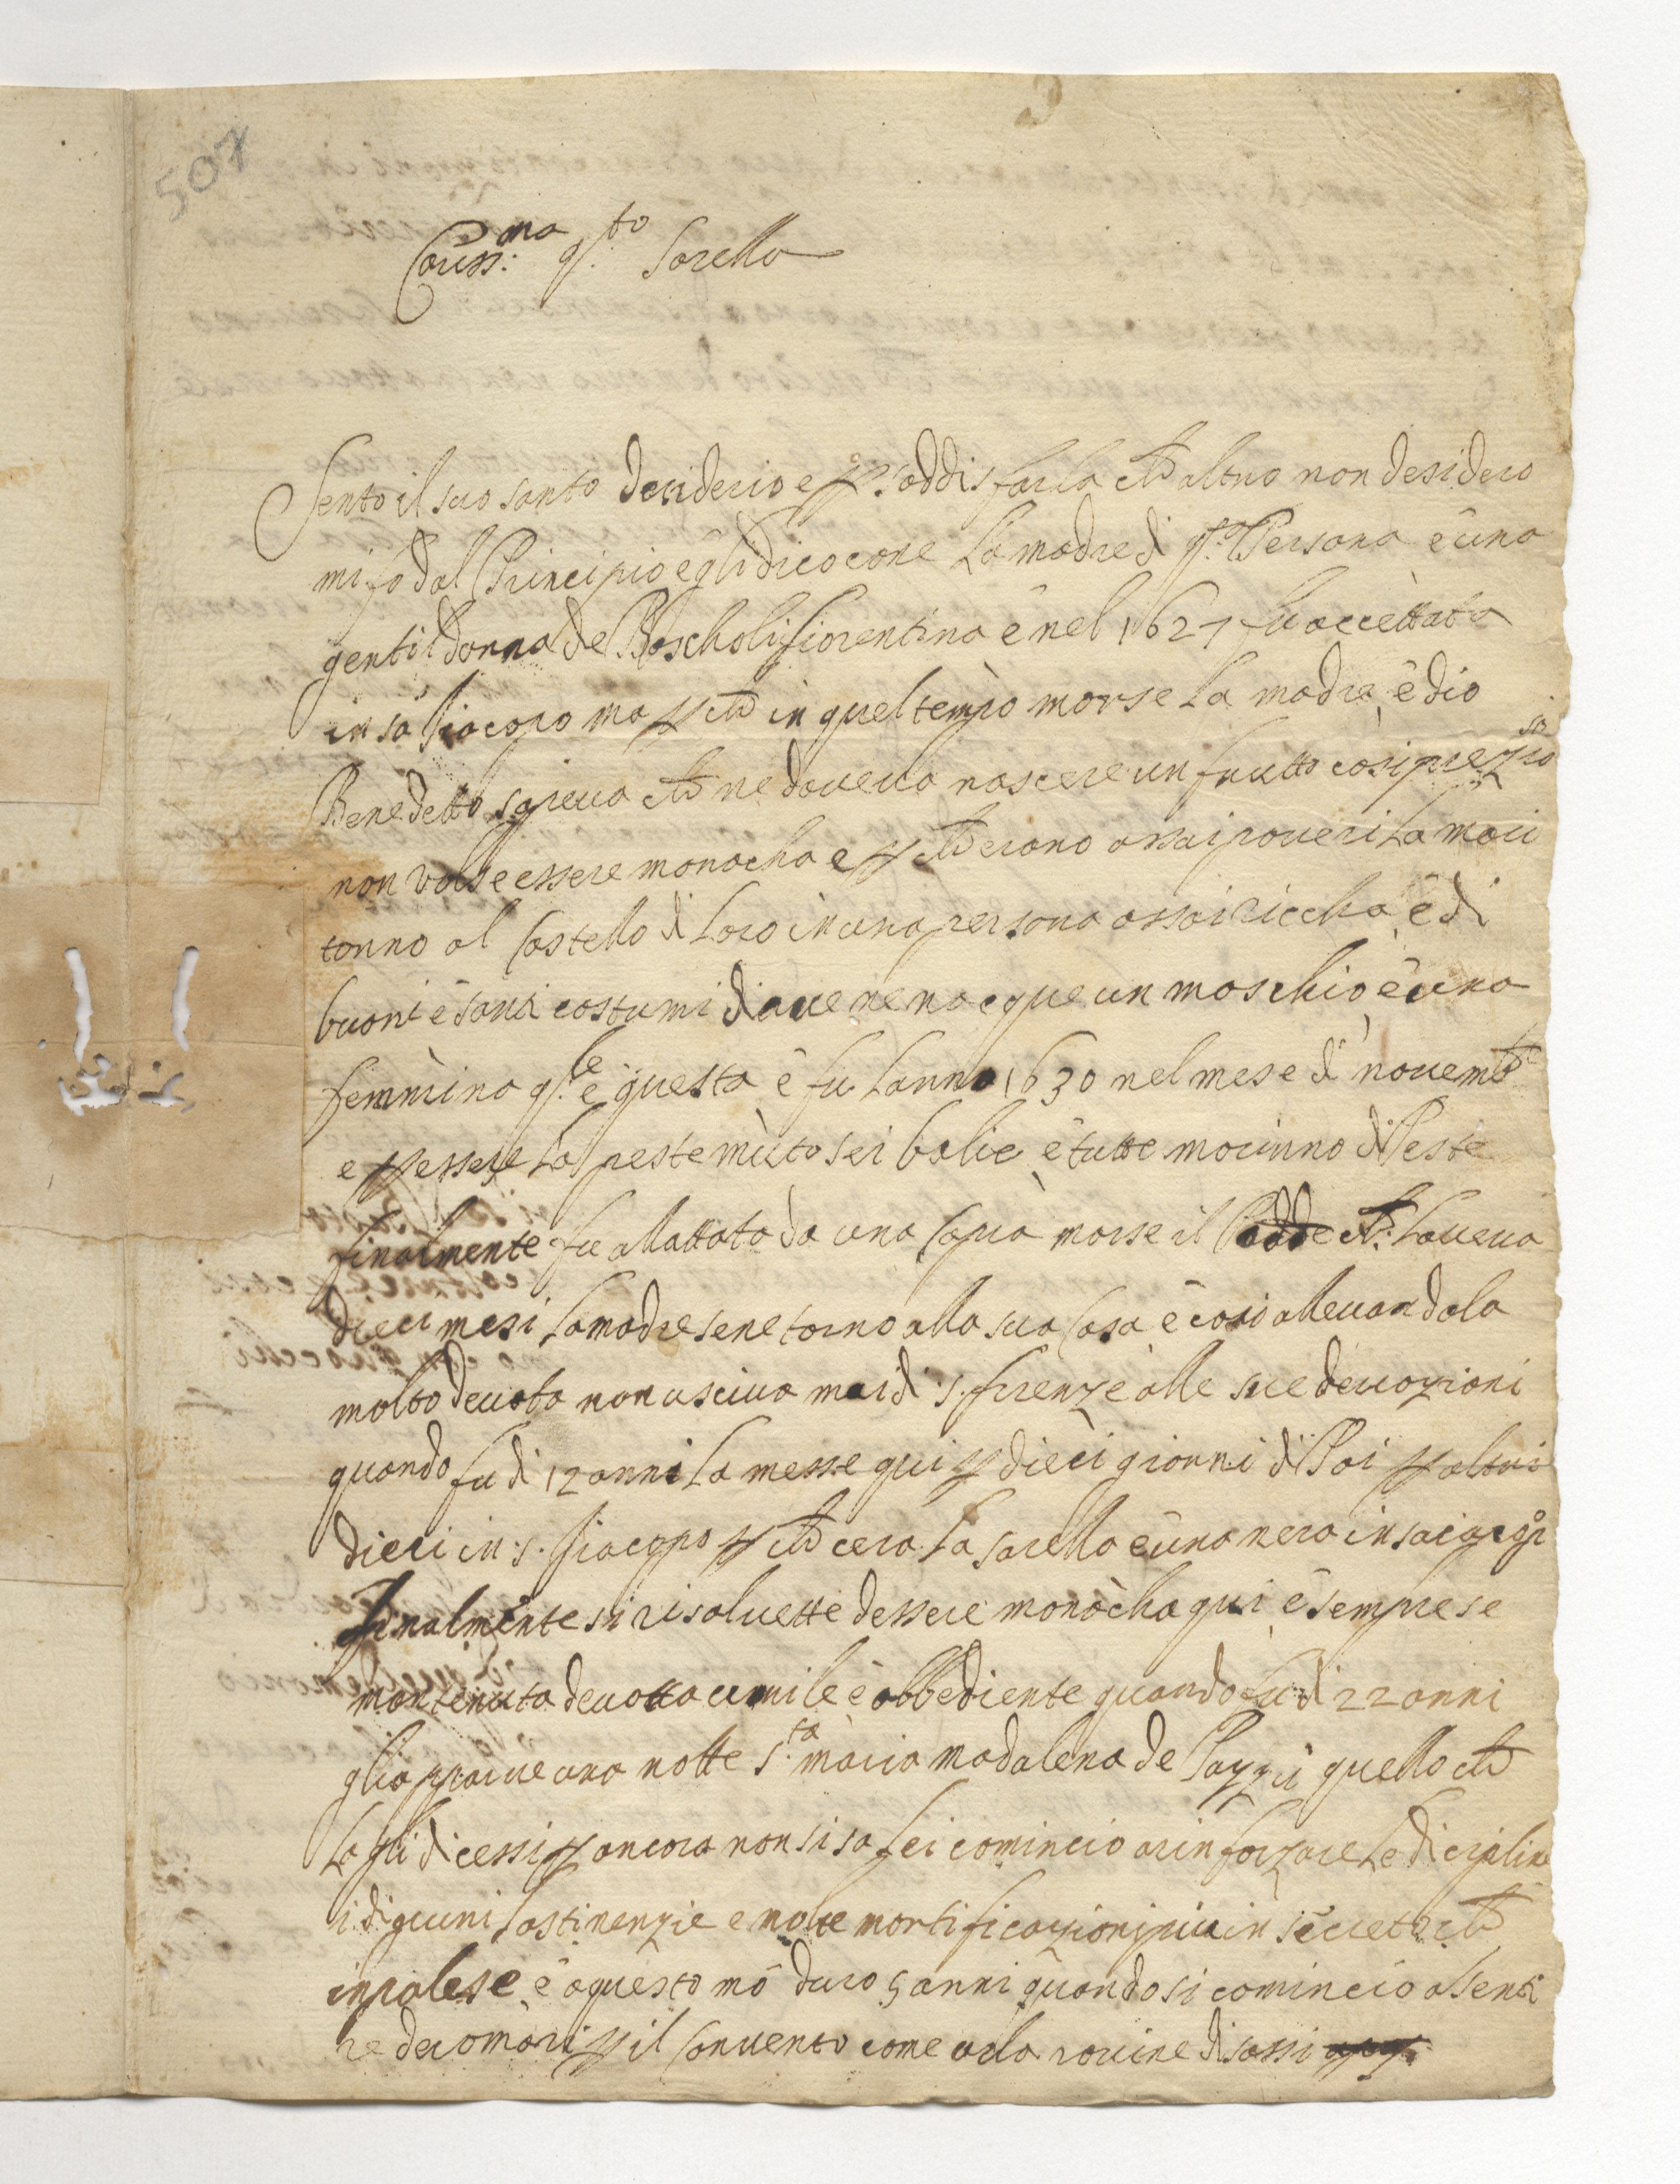 507
Cariss:ma q.to Sorella
Sento il suo santo desiderio e p. soddisfarla ch altro non desidero
mi fo dal Principio e gli dico come La madre di q.ta Persona è una
gentildonna de Boscholi fiorentina e nel 1627 fu accettata
in sa Jiacopo ma p ch in quel tempo morse La madre, e dio
Benedetto sapeua ch ne doueua nascere un frutto cosi prezioso
non volse essere monacha e p ch erano assai poueri La mari
tonno al Castello di Loro in una persona assai riccha, e di
buoni e santi costumi di aue ne nacque un maschio e una
femmina q.le e questa e fu Lanno 1630 nel mese di nouemb
e p essere La peste muto sei balie e tutte morinno di Peste
finalmente fu allattata da una Capra morse il Padre ch: Laueua
dieci mesi La madre sene torno alla sua Casa e cosi alleuandola
molto deuota non usciua mai di s. firenze alle sue deuozioni
quando fu di 12 anni La messe qui p dieci gionni di Poi p altri
dieci in s. Jiacopo p ch cera La sorella e una nera in
finalmente si risoluette dessere monacha qui e sempre se
mantenuta deuota umile e obbediente quando fu di 22 anni
gli apparue una notte S.ta maria madalena de Pazzi quello ch
La gli dicessi p ancora non si sa Lei comincio a rinforzare Le dicipline
i digiuni Lastinenzie e molte mortificazioni piu in secreto ch
in palese e a questo mo duro 5 anni quando si comincio a senti
re de romori p il Conuento come uela rouine di sassi